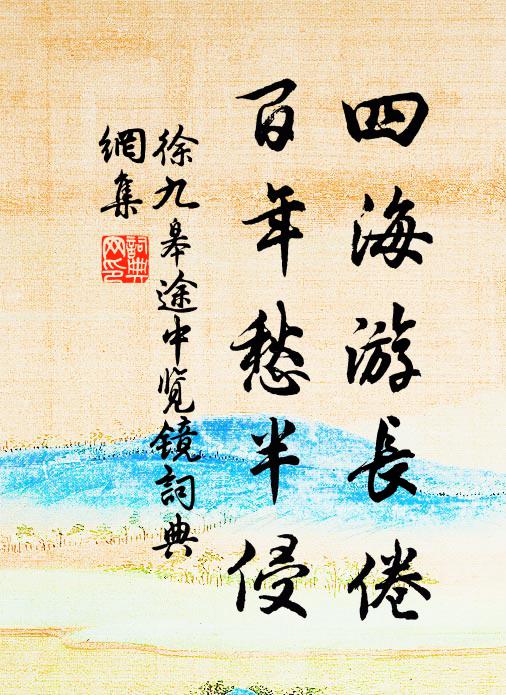 四海游長倦
百年愁半侵
徐九皋途中览镜詞典
網集
詞典
网印